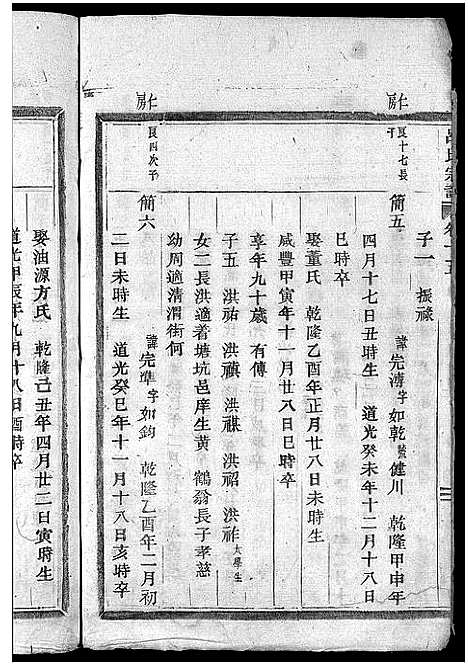 呂氏宗譜 卷十五
子一 振祿
仁房 良十七長子 簡五 諱完濤字如乾號健川 乾隆甲申年
四月十七日丑時生 道光癸未年十二月十八日
巳時卒
娶董氏 乾隆乙酉年正月廿八日未時生
咸豐甲寅年十一月廿八日巳時卒
享年九十歲 有傳
子五 洪祐 洪祺 洪禥 洪祒 洪祚太學生
女二長洪適着塘坑邑庠生黃 鶴翁長子孝慈
幼周適清渭街何
仁房 良四次子 簡六 諱完準字如鈞 乾隆乙酉年二月初
二日未時生 道光癸巳年十一月十八日亥時卒
娶油源方氏 乾隆己丑年四月廿二日寅時生
道光甲辰年九月十八日酉時卒